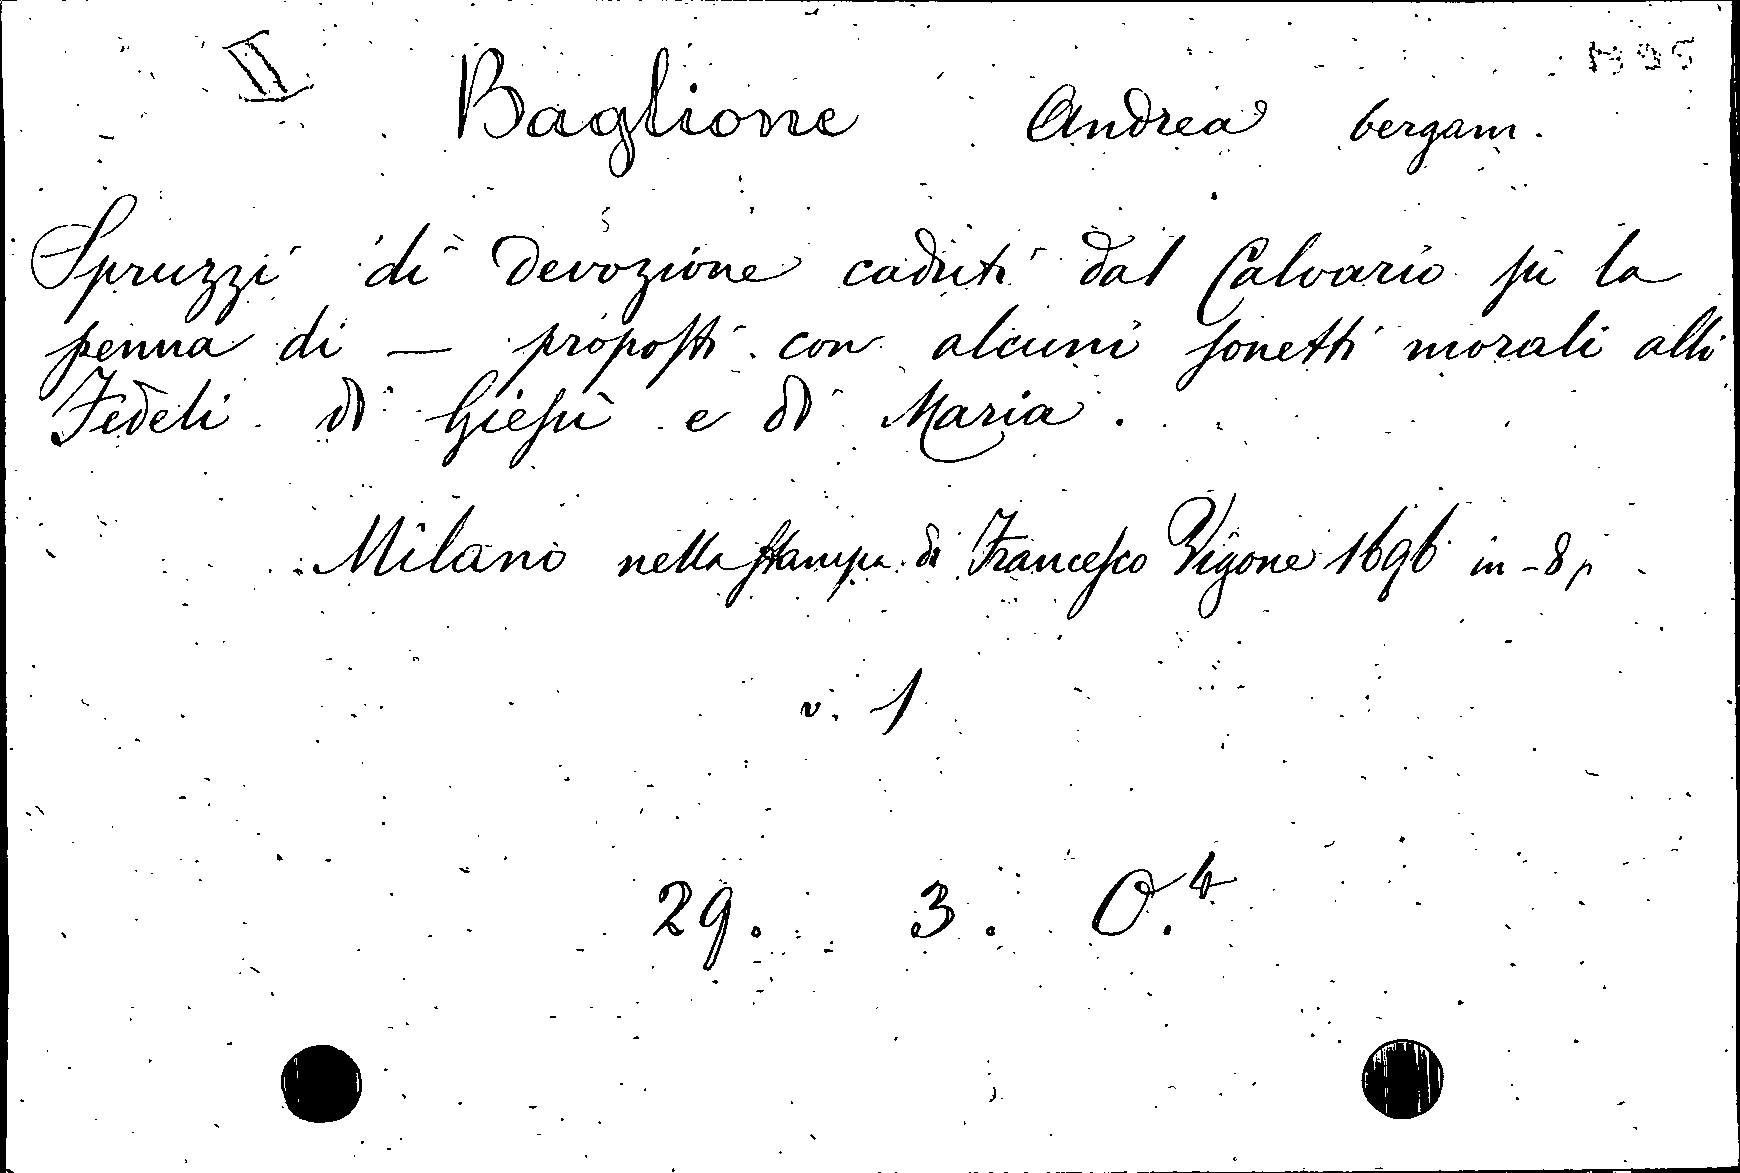 II Baglione Andrea bergam.
Spruzzi di devozione caduti dal Calvario sù la
penna di — proposti con alcuni sonetti morali alli
Fedeli di Giesù e di Maria.
Milano nella stampa di Francesco Vigone 1696 in-8 p
v. 1
29. 3. O.4